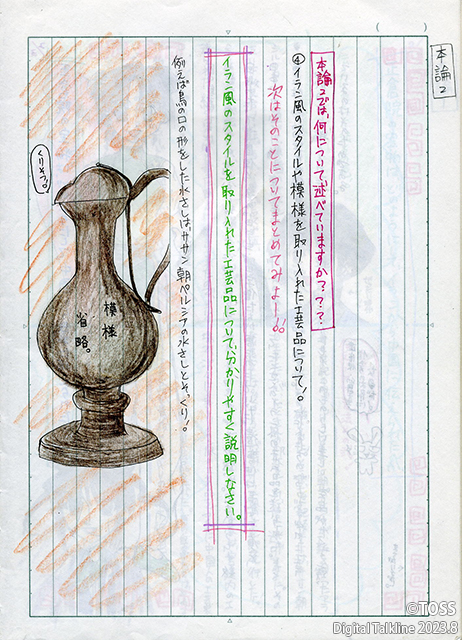 本論2
本論2では、何について述べていますか???
④イラン風のスタイルや模様を取り入れた工芸品について!。
次はそのことについてまとめてみよー!!
イラン風のスタイルを取り入れた工芸品について、分かりやすく説明しなさい。
例えば鳥の口の形をした水さしは、ササン朝ペルシアの水さしとそっくり!
くりそつ。
模様
省略。
©TOSS
Digital Talkline 2023.8